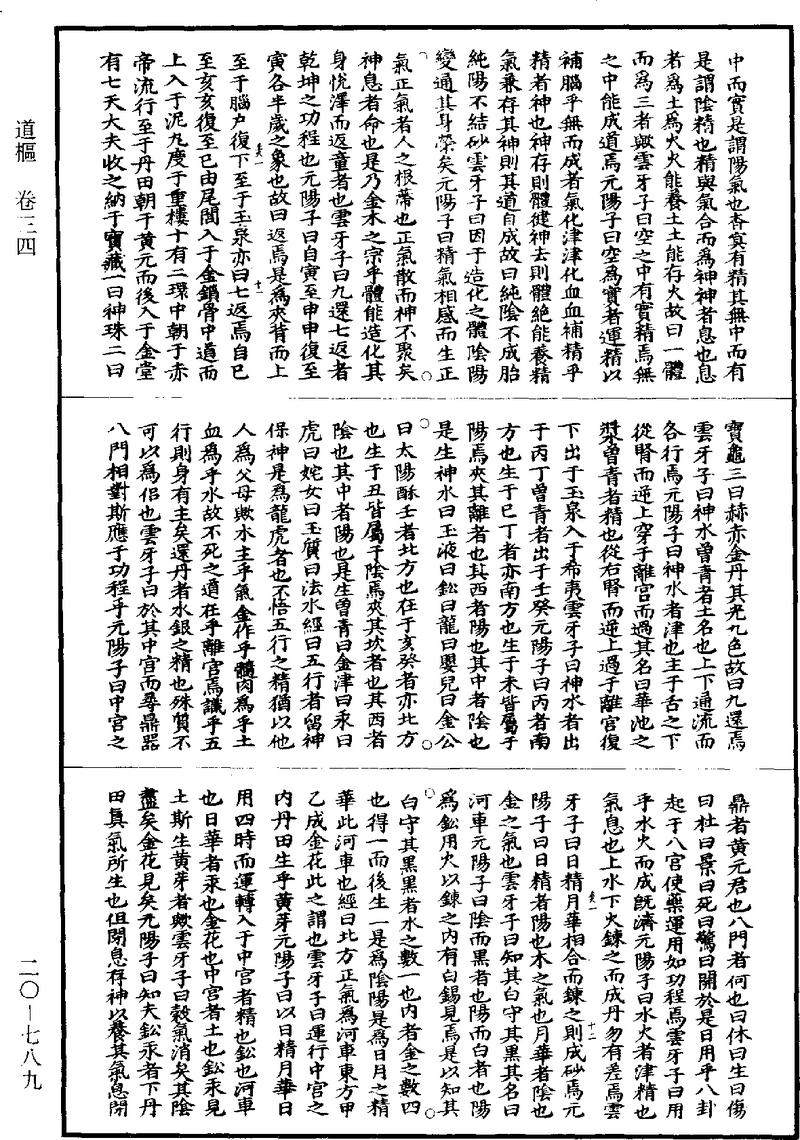 道樞 卷三四
二〇—七八九
中而實是謂陽氣也杳真有精其無中而有
是謂陰精也精與氣合而爲神神者息也息
者爲土爲火火能養土土能存火故曰一體
而爲三者歟雲牙子曰空之中有實精焉無
之中能成道焉元陽子曰空爲實者運精以
補腦乎無而成者氣化津津化血血補精乎
精者神也神存則體健神去則體絶能養精
氣兼存其神則其道自成故曰純陰不成胎
純陽不結砂雲牙子曰因于造化之體陰陽
變通其身榮矣元陽子曰精氣相感而生正
氣正氣者人之根蔕也正氣散而神不聚矣
神息者命也是乃金木之宗乎體能造化其
身悅澤而返童者也雲牙子曰九還七返者
乾坤之功程也元陽子曰自寅至申申復至
寅各半歲之象也故曰返焉是爲夾脊而上
至于腦户復下至于玉泉亦曰七返焉自巳
至亥亥復至巳由尾閭入于金鎖骨中道而
上入于泥丸度于重樓十有二環中朝于赤
帝流行至于丹田朝于黄元而後入于金堂
有七天大夫收之納于寶藏一曰神珠二曰
寶龜三曰赫赤金丹其光九色故曰九還焉
雲牙子曰神水曾青者土名也上下通流而
各行焉元陽子曰神水者津也主于舌之下
從腎而逆上穿于離宮而過其名曰華池之
漿曾青者精也從右腎而逆上過于離宮復
下出于玉泉入于希夷雲牙子曰神水者出
于丙丁曾青者出于壬癸元陽子曰丙者南
方也生于巳丁者亦南方也生于未皆屬于
陽焉夾其離者也其西者陽也其中者陰也
是生神水曰玉液曰鈆曰龍曰嬰兒曰金公
曰太陽酥壬者北方也在于亥癸者亦北方
也生于丑皆屬于陰焉夾其坎者也其西者
陰也其中者陽也是生曾青曰金津曰汞曰
虎曰姹女曰玉質曰法水經曰五行者留神
保神是爲龍虎者也不悟五行之精猶以他
人爲父母歟水主乎氣金作乎髓肉爲乎土
血爲乎水故不死之道在乎離宮焉識乎五
行則身有主矣還丹者水銀之精也殊質不
可以爲侣也雲牙子曰於其中宮而尋鼎器
八門相對斯應于功程乎元陽子曰中宮之
鼎者黄元君也八門者何也曰休曰生曰傷
曰杜曰景曰死曰驚曰開於是日用乎八卦
起于八宮使藥運用如功程焉雲牙子曰用
乎水火而成旣濟元陽子曰水火者津精也
氣息也上水下火鍊之而成丹勿有差焉雲
牙子曰日精月華相合而鍊之則成砂焉元
陽子曰日精者陽也木之氣也月華者陰也
金之氣也雲牙子曰知其白守其黑其名曰
河車元陽子曰陰而黑者也陽而白者也陽
爲鈆用火以鍊之内有白錫見焉是以知其
白守其黑黑者水之數一也内者金之數四
也得一而後生一是爲陰陽是爲日月之精
華此河車也經曰北方正氣爲河車東方甲
乙成金花此之謂也雲牙子曰運行中宮之
内丹田生乎黄芽元陽子曰以日精月華日
用四時而運轉入于中宮者精也鈆也河車
也日華者汞也金花也中宮者土也鈆汞見
土斯生黄芽者歟雲牙子曰榖氣消矣其陰
盡矣金花見矣元陽子曰知夫鈆汞者下丹
田真氣所生也但閉息存神以養其氣息閉